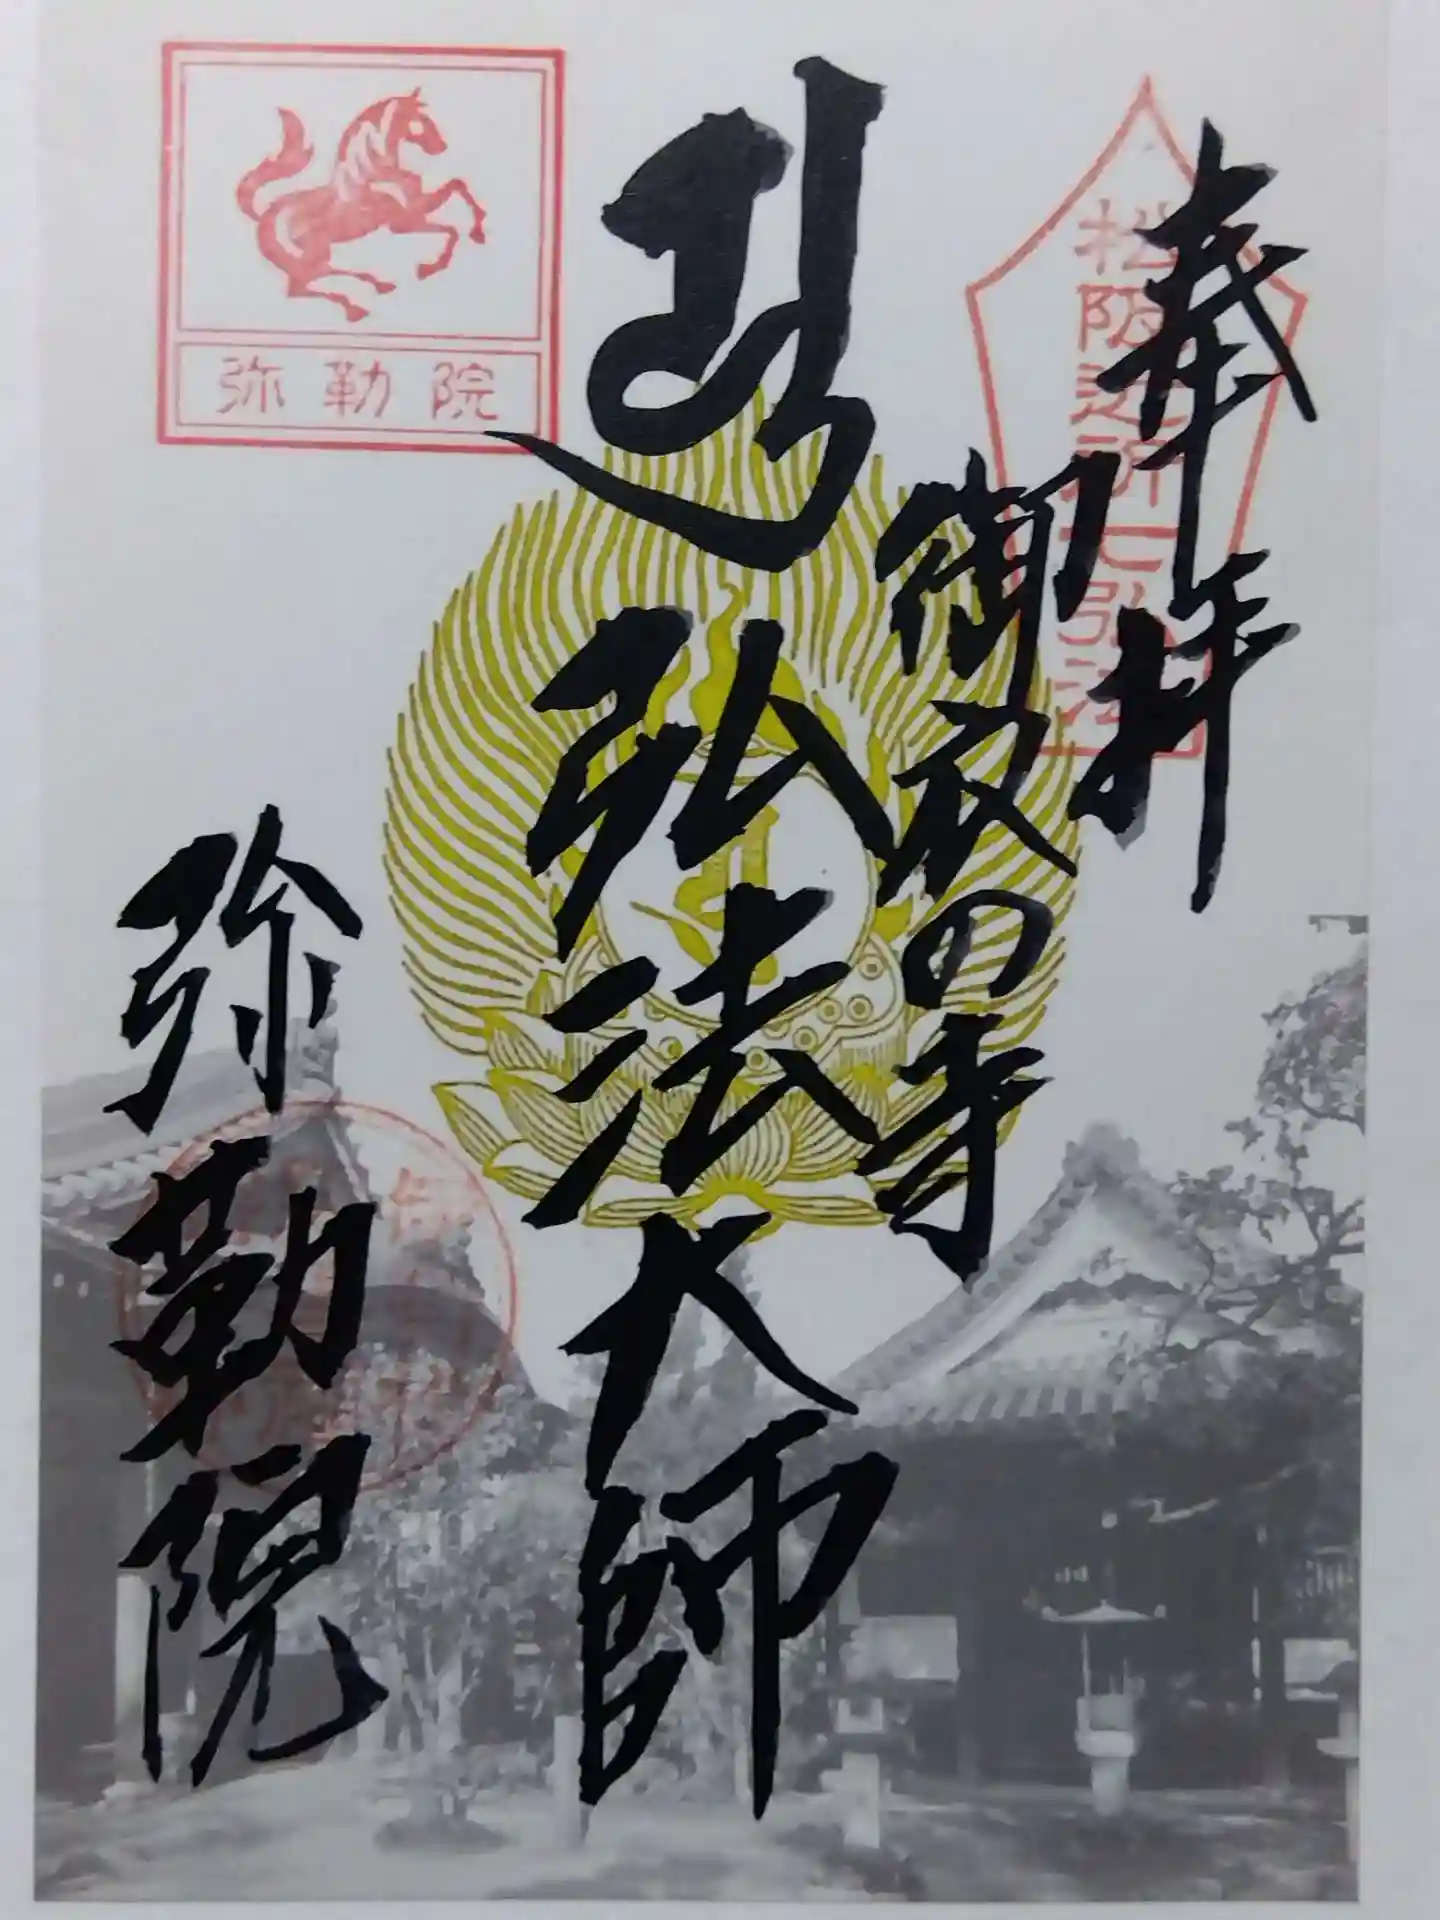 奉拝
松阪近所七弘法
御衣の寺
弘法大師
弥勒院
弥勒院